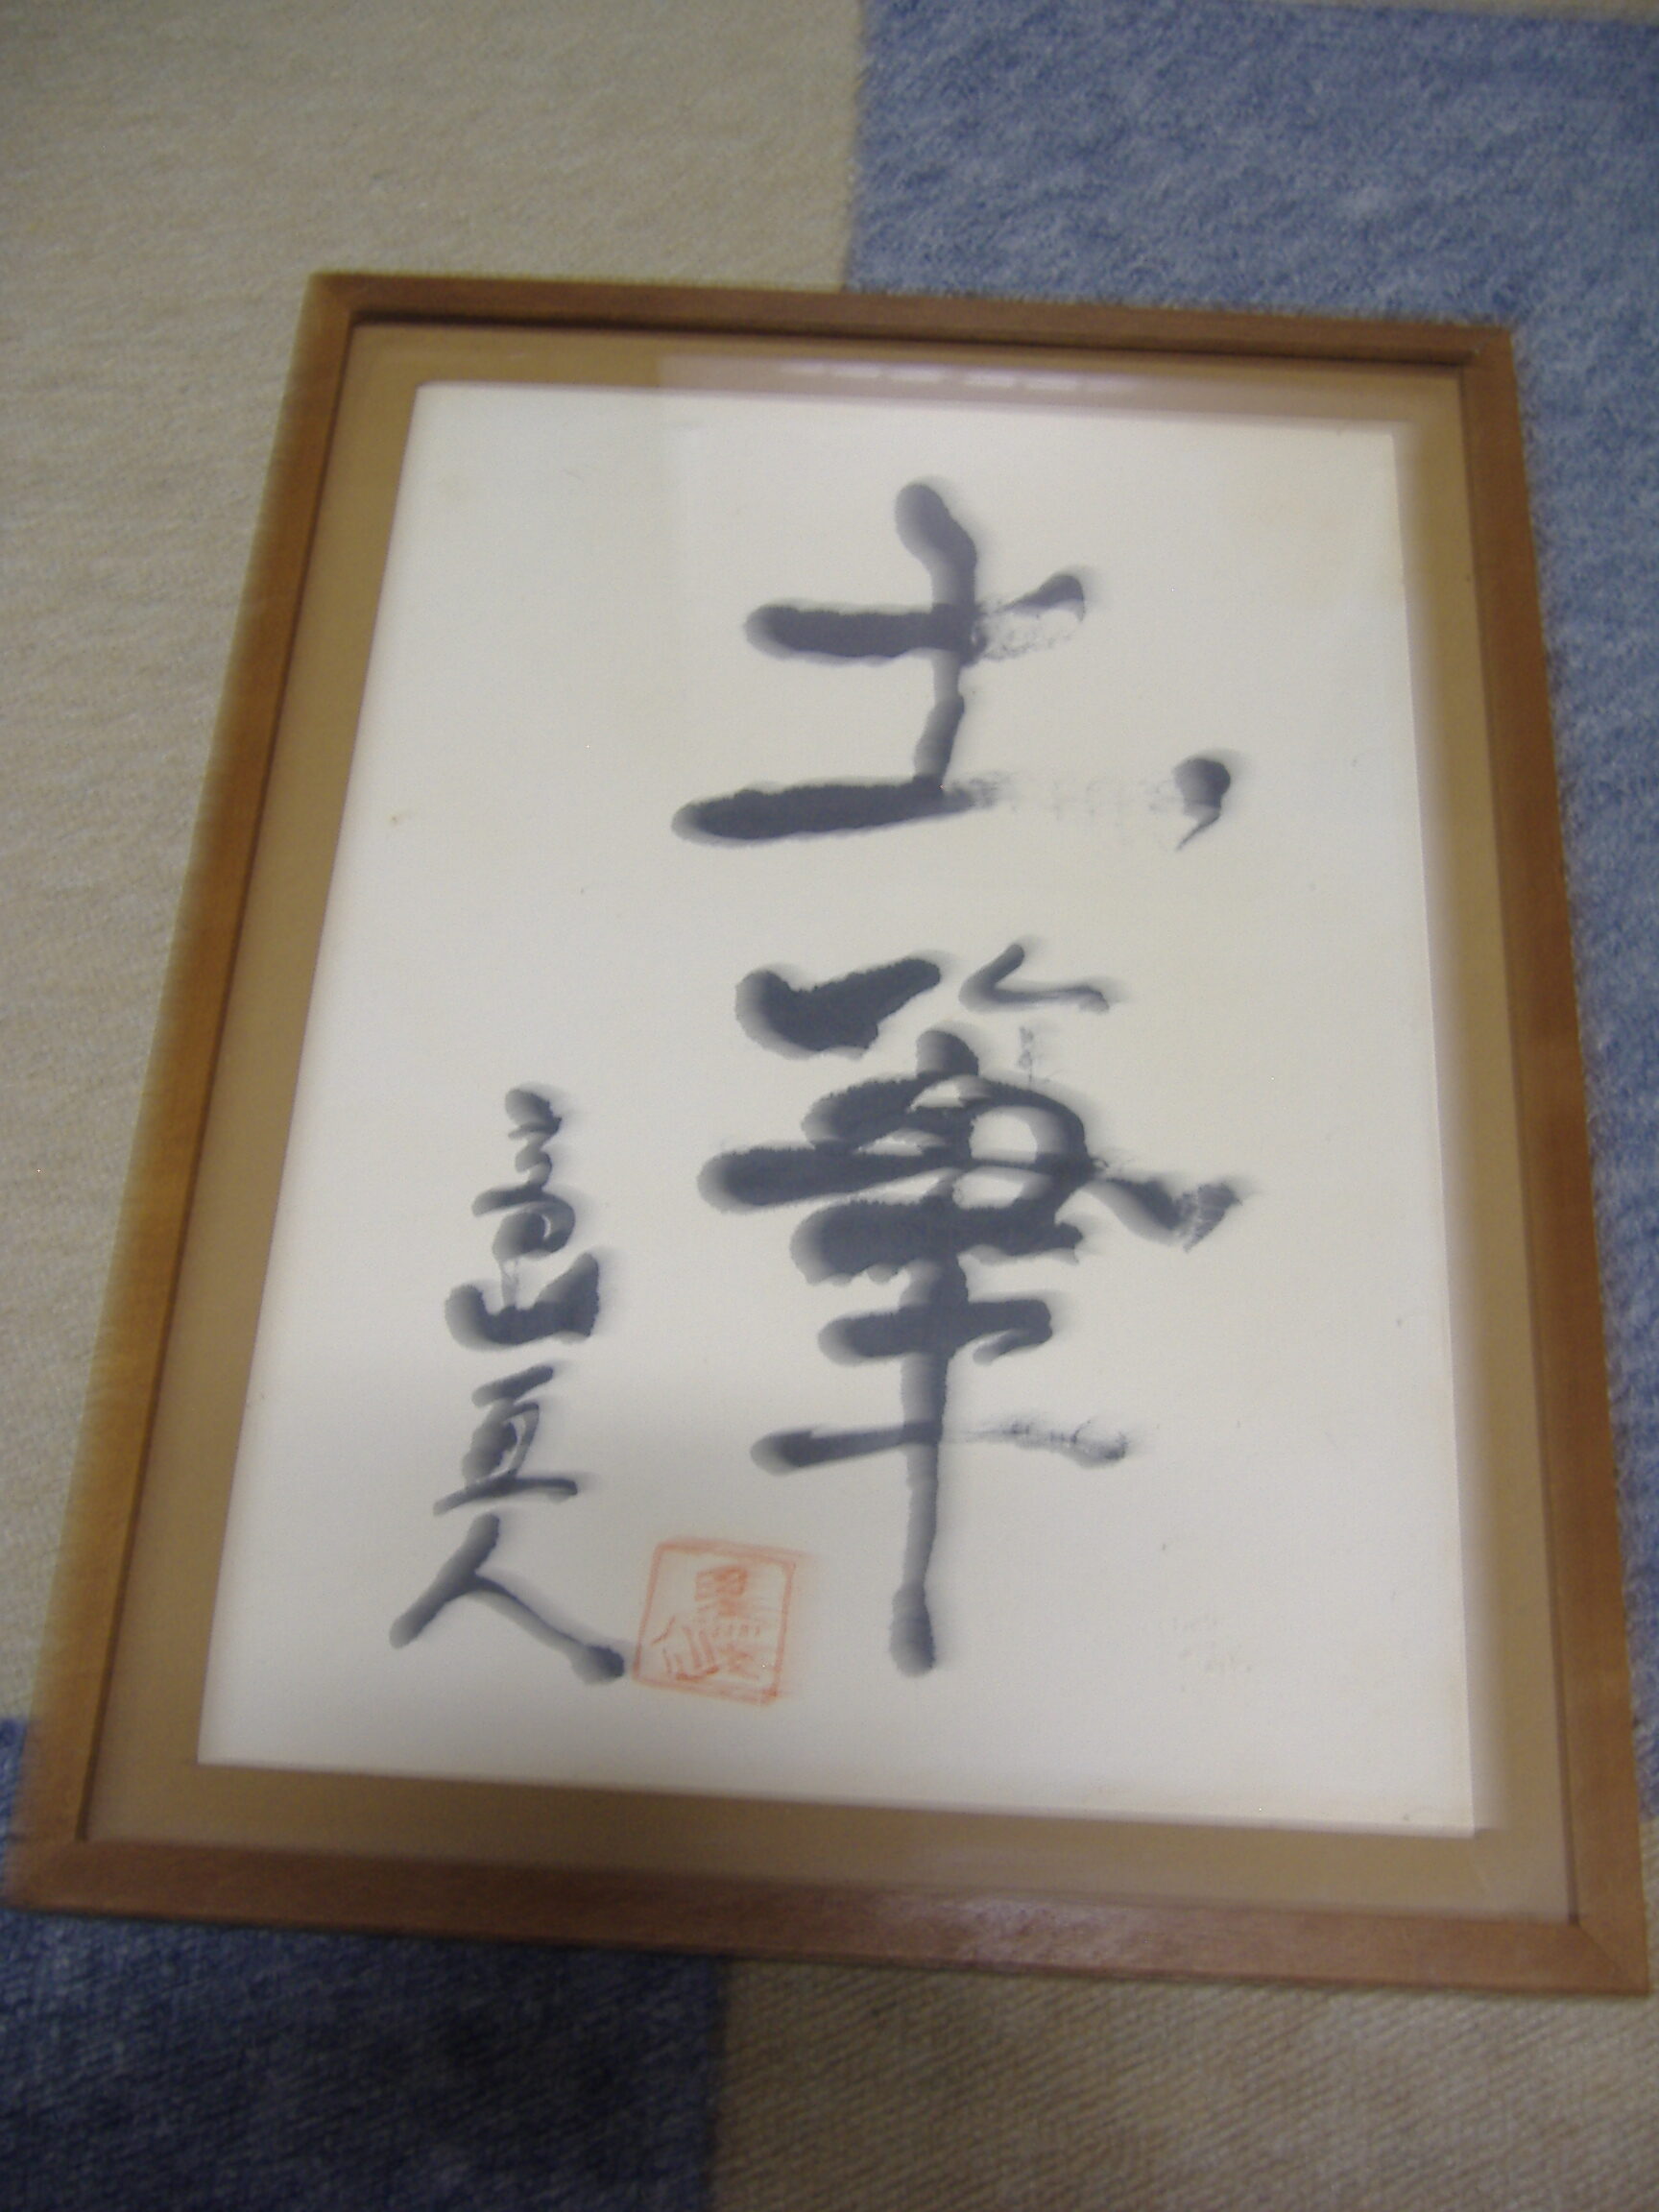 土筆
高山直人